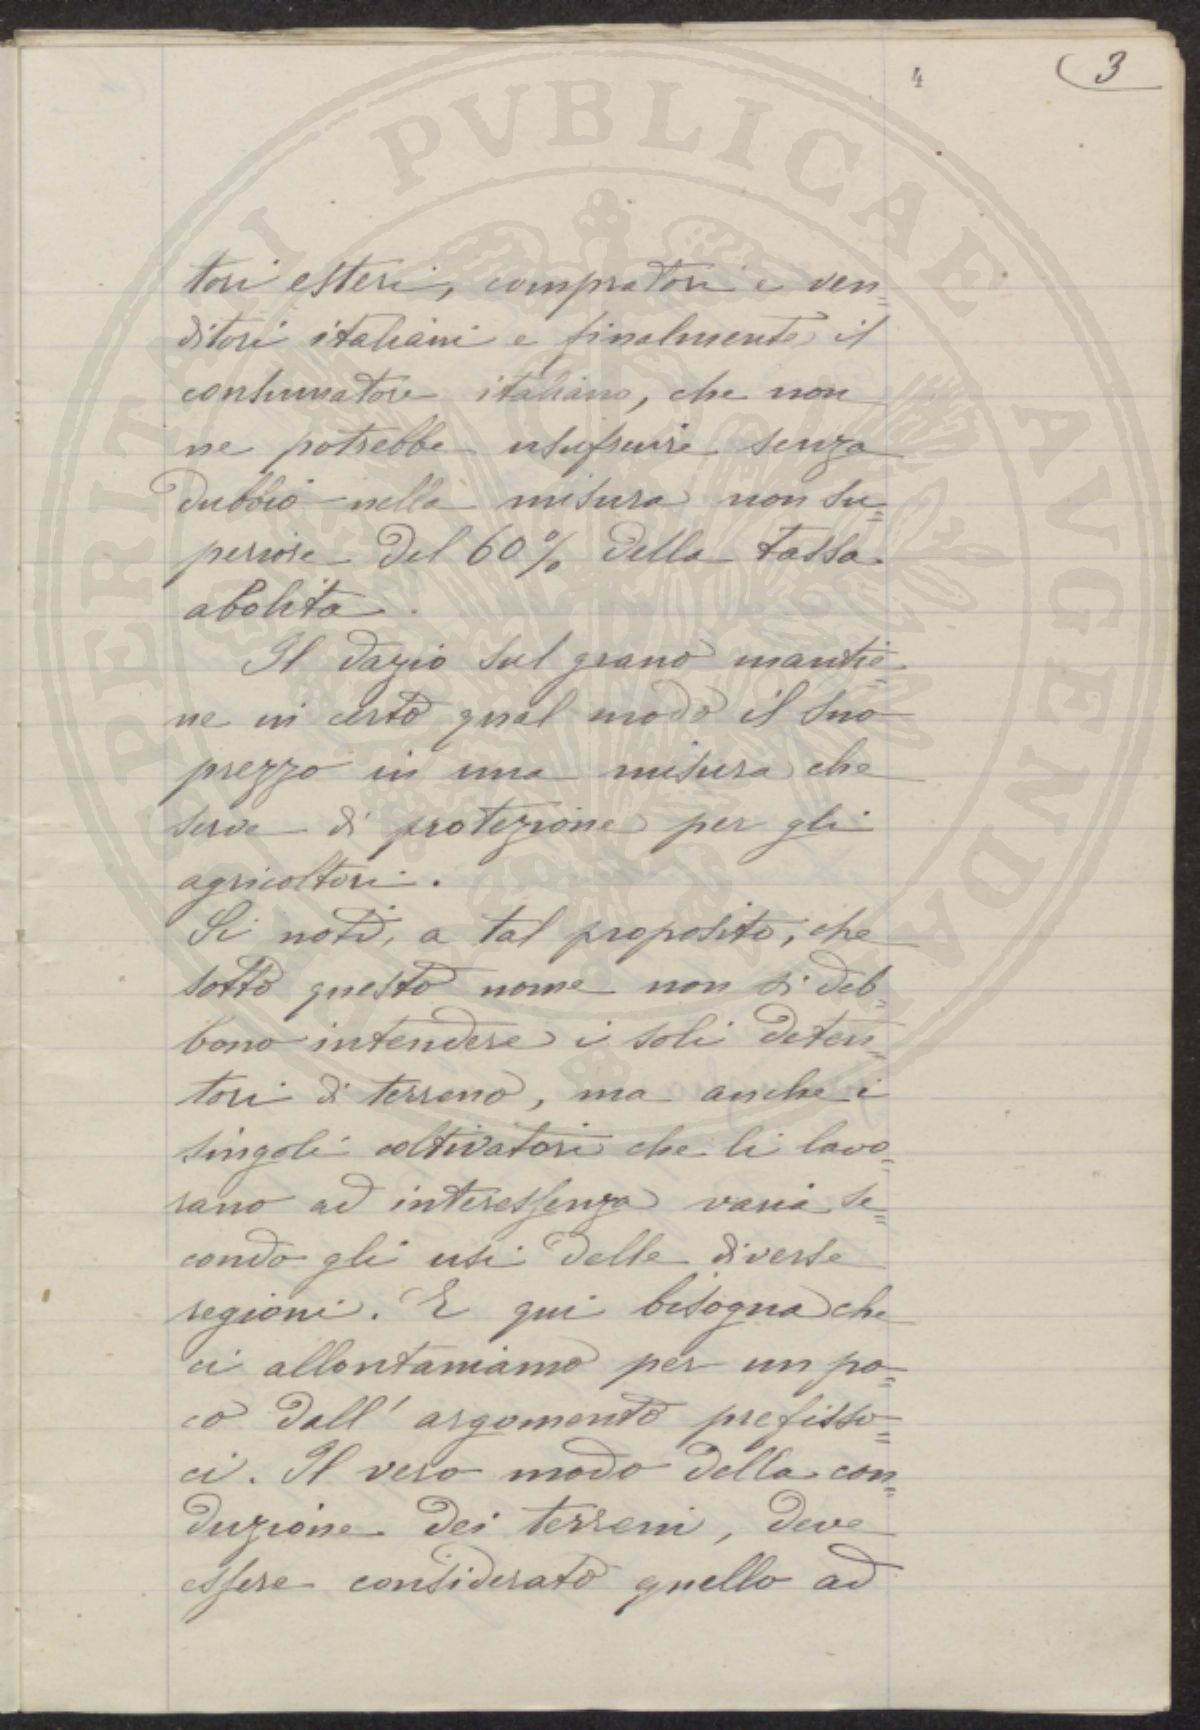 4
3
tori esteri, compratori e ven=
ditori italiani e finalmente il
consumatore italiano, che non
ne potrebbe usufruire senza
dubbio nella misura non su=
periore del 60% della tassa
abolita.
Il dazio sul grano mantie=
ne in certo qual modo il suo
prezzo in una misura che
serve di protezione per gli
agricoltori.
Si noti, a tal proposito, che
sotto questo nome non si deb=
bono intendere i soli deten=
tori di terreno, ma anche i
singoli coltivatori che li lavo=
rano ad interessenza varia se=
condo gli usi delle diverse
regioni. E qui bisogna che
ci allontaniamo per un po=
co dall'argomento prefisso=
ci. Il vero modo della con=
duzione dei terreni, deve
essere considerato quello ad
PERITATI PVBLICAE AVGENDAE